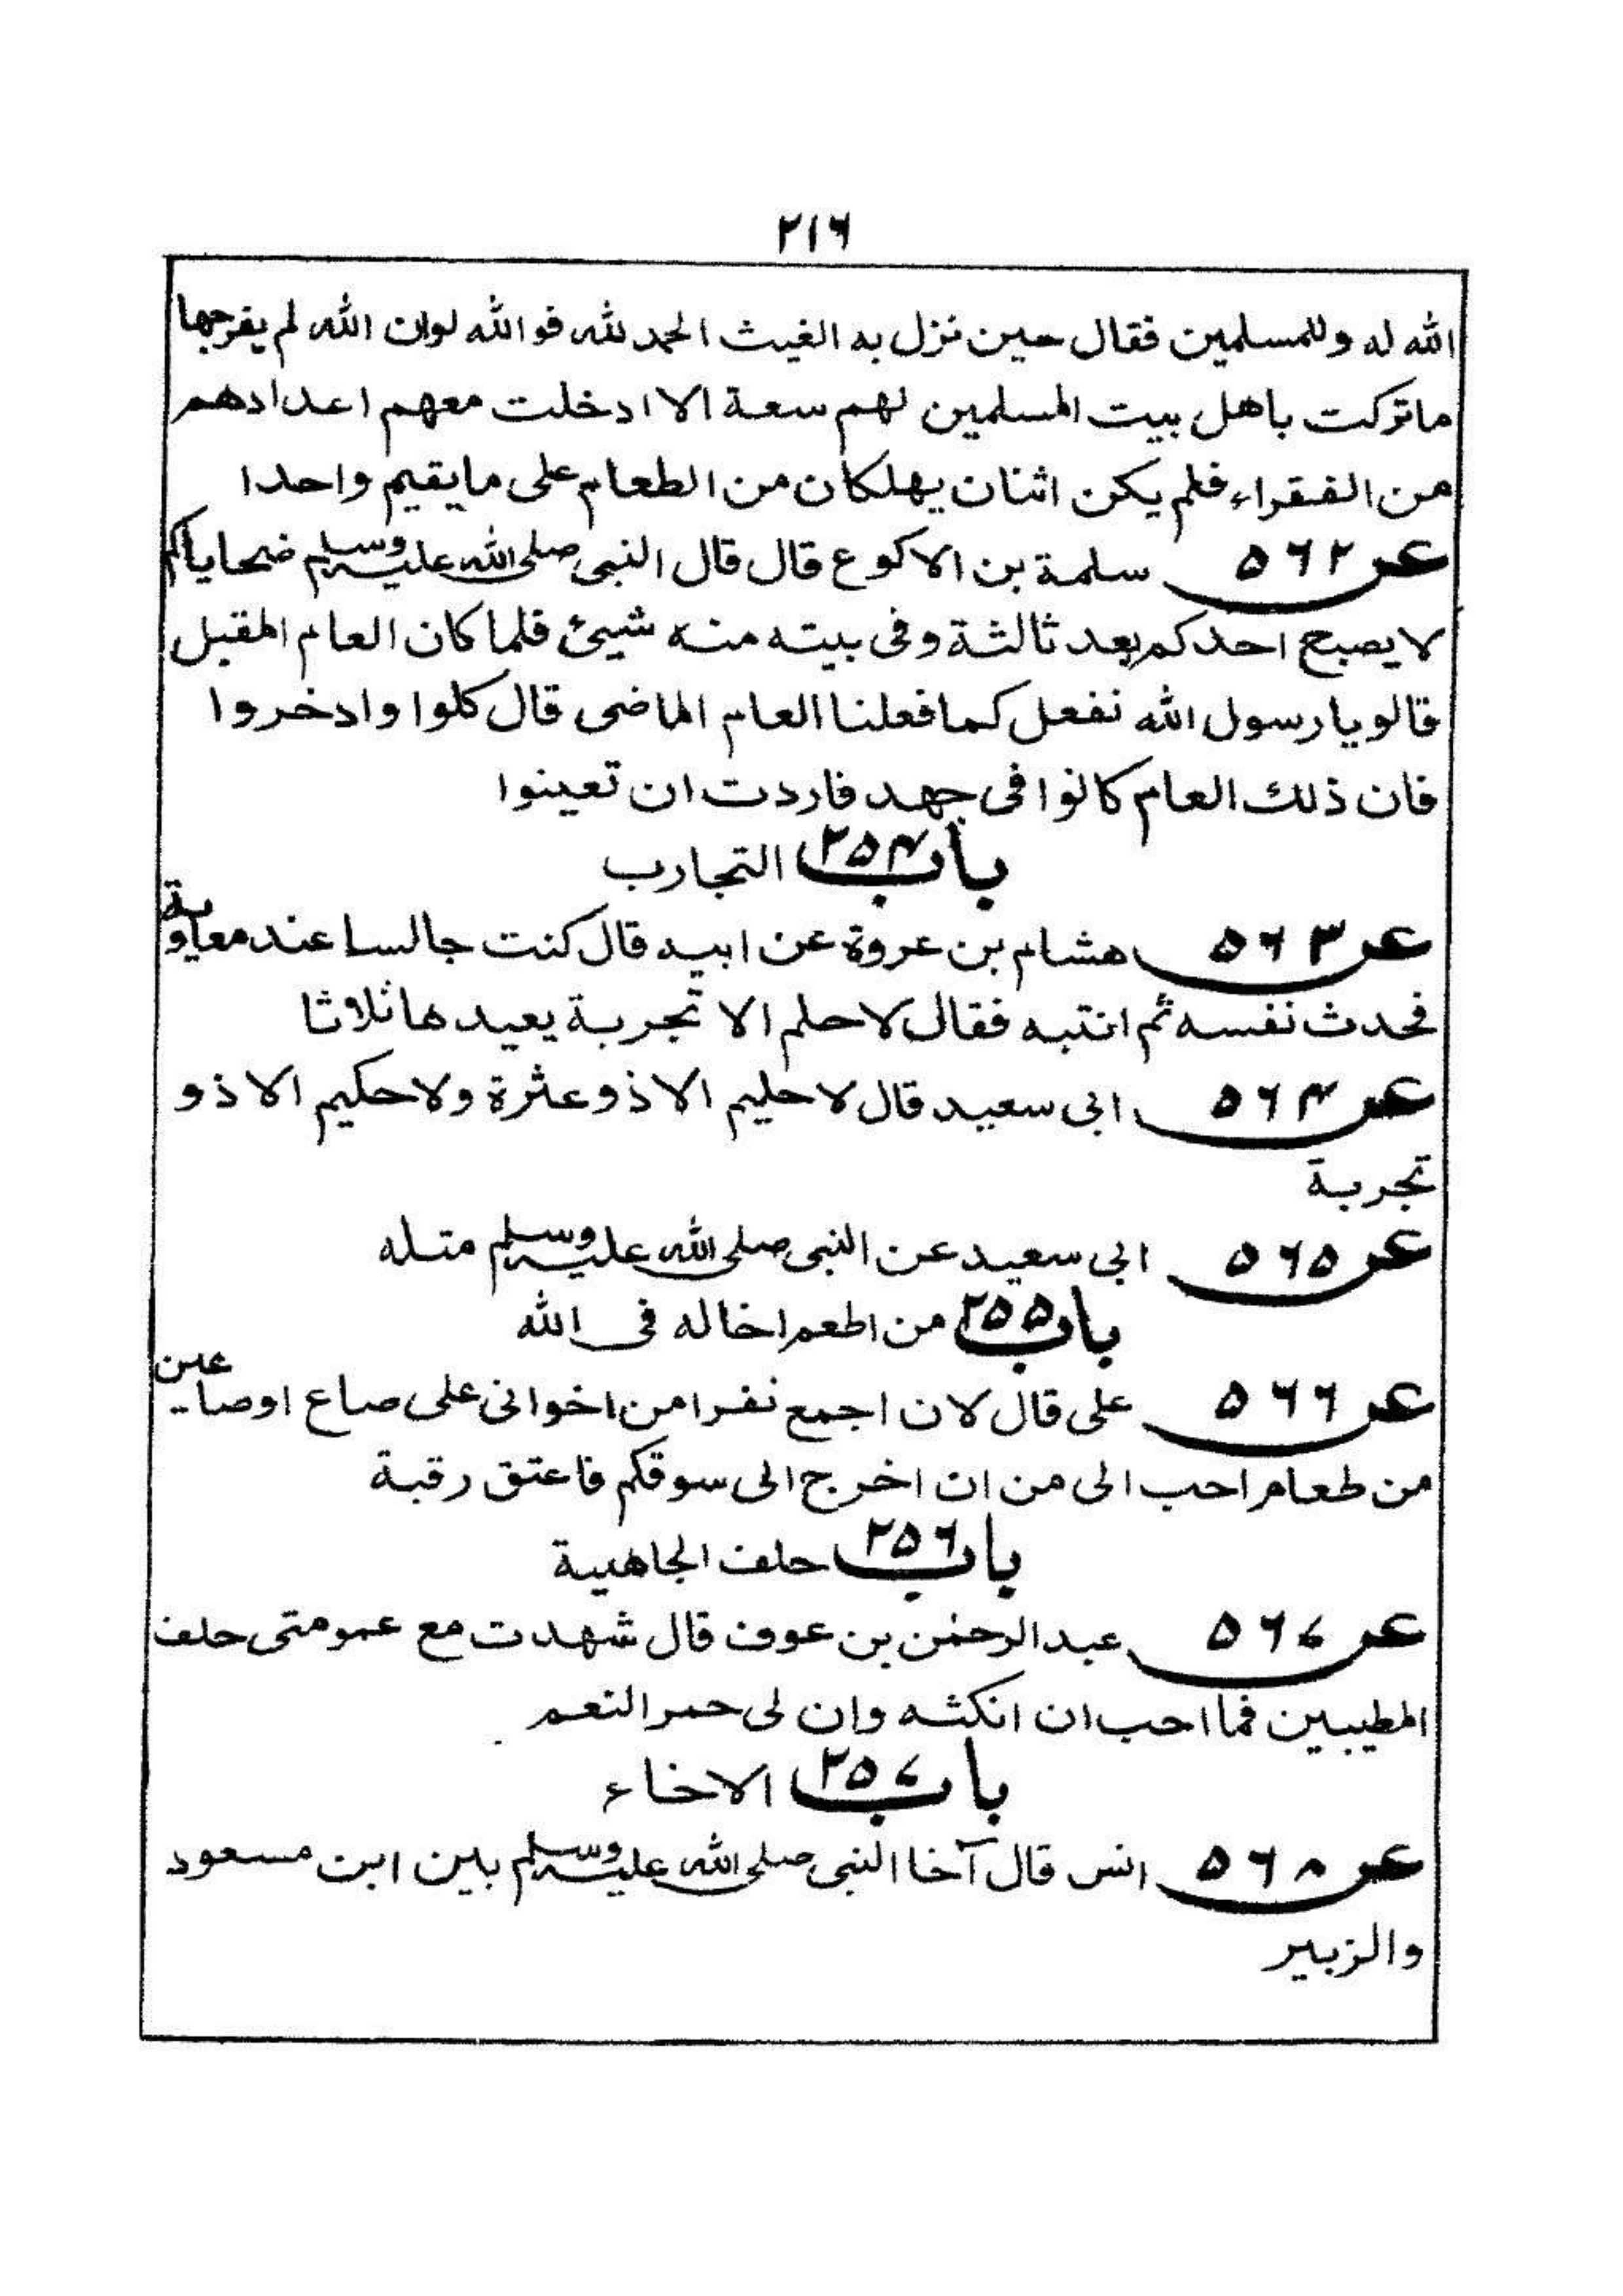 ٢١٦
الله له وللمسلمين فقال حين نزل به الغيث الحمد لله فوالله لوان الله لم يفرجها
ماتركت باهل بيت المسلمين لهم سعة الا ادخلت معهم اعدادهم
من الفقراء فلم يكن اثنان يهلكان من الطعام على مايقيم واحدا
عن ٥٦٢ سلمة بن الاكوع قال قال النبى صلى الله عليه وسلم ضحاياكم
لايصبح احدكم بعد ثالثة وفى بيته منه شيئ فلما كان العام المقبل
قالو يا رسول الله نفعل كما فعلنا العام الماضى قال كلوا وادخروا
فان ذلك العام كانوا فى جهد فاردت ان تعينوا
باب ٢٥٤ التجارب
عن ٥٦٣ هشام بن عروة عن ابيه قال كنت جالسا عند معاوية
فحدث نفسه ثم انتبه فقال لاحلم الا تجربة يعيدها ثلاثا
عن ٥٦٤ ابى سعيد قال لا حليم الا ذو عثرة ولا حكيم الا ذو
تجربة
عن ٥٦٥ ابى سعيد عن النبى صلى الله عليه وسلم متله
باب ٢٥٥ من اطعم اخا له فى الله
عن ٥٦٦ على قال لان اجمع نفرا من اخوانى على صاع او صاعين
من طعام احب الى من ان اخرج الى سوقكم فاعتق رقبة
باب ٢٥٦ حلف الجاهيية
عن ٥٦٧ عبد الرحمٰن بن عوف قال شهدت مع عمومتى حلف
المطيبين فما احب ان انكثه وان لى حمر النعم
باب ٢٥٧ الاخاء
عن ٥٦٨ انس قال آخا النبى صلى الله عليه وسلم بين ابن مسعود
والزبير